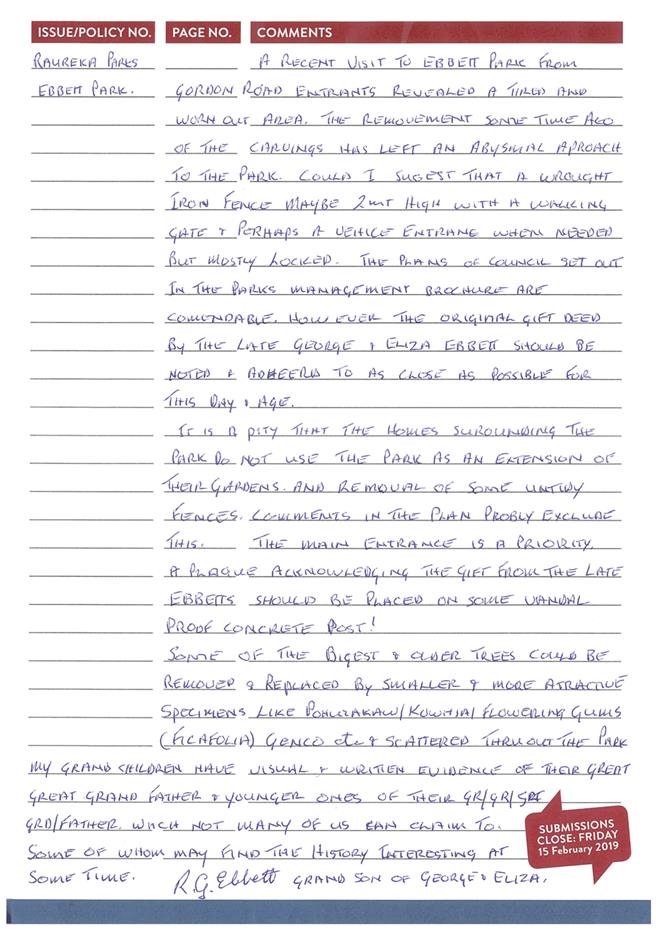 ISSUE/POLICY NO. PAGE NO. COMMENTS
RAUREKA PARKS A RECENT VISIT TO EBBETT PARK FROM
EBBETT PARK. GORDON ROAD ENTRANTS REVEALED A TIRED AND
WORN OUT AREA. THE REMOVEMENT SOME TIME AGO
OF THE CARVINGS HAS LEFT AN ABYSMAL APROACH
TO THE PARK. COULD I SUGEST THAT A WROUGHT
IRON FENCE MAYBE 2MT HIGH WITH A WALKING
GATE & PERHAPS A VEHICLE ENTRANE WHEN NEEDED
BUT MOSTLY LOCKED. THE PLANS OF COUNCIL SET OUT
IN THE PARKS MANAGEMENT BROCHURE ARE
COMENDABLE. HOWEVER THE ORIGINAL GIFT DEED
BY THE LATE GEORGE & ELIZA EBBETT SHOULD BE
NOTED & ADHEERD TO AS CLOSE AS POSSIBLE FOR
THIS DAY & AGE.
IT IS A PITY THAT THE HOMES SUROUNDING THE
PARK DO NOT USE THE PARK AS AN EXTENSION OF
THEIR GARDENS. AND REMOVAL OF SOME UNTIDY
FENCES. COMMENTS IN THE PLAN PROBLY EXCLUDE
THIS. THE MAIN ENTRANCE IS A PRIORITY.
A PLAQUE ACKNOWLEDGING THE GIFT FROM THE LATE
EBBETTS SHOULD BE PLACED ON SOME VANDAL
PROOF CONCRETE POST!
SOME OF THE BIGEST & OLDER TREES COULD BE
REMOVED & REPLACED BY SMALLER & MORE ATRACTIVE
SPECIMENS LIKE /KOWHIA/FLOWERING GUMS
(FICAFOLIA) ETC & SCATTERED THRUOUT THE PARK
MY GRAND CHILDREN HAVE VISUAL & WRITTEN EVIDENCE OF THEIR GREAT
GREAT GRAND FATHER & YOUNGER ONES OF THEIR GR/GR/GRT
GRD/FATHER. WHCH NOT MANY OF US CAN CLAIM TO.
SOME OF WHOM MAY FIND THE HISTORY INTERESTING AT
SOME TIME. R.G. Ebbett GRAND SON OF GEORGE & ELIZA.
SUBMISSIONS
CLOSE: FRIDAY
15 February 2019